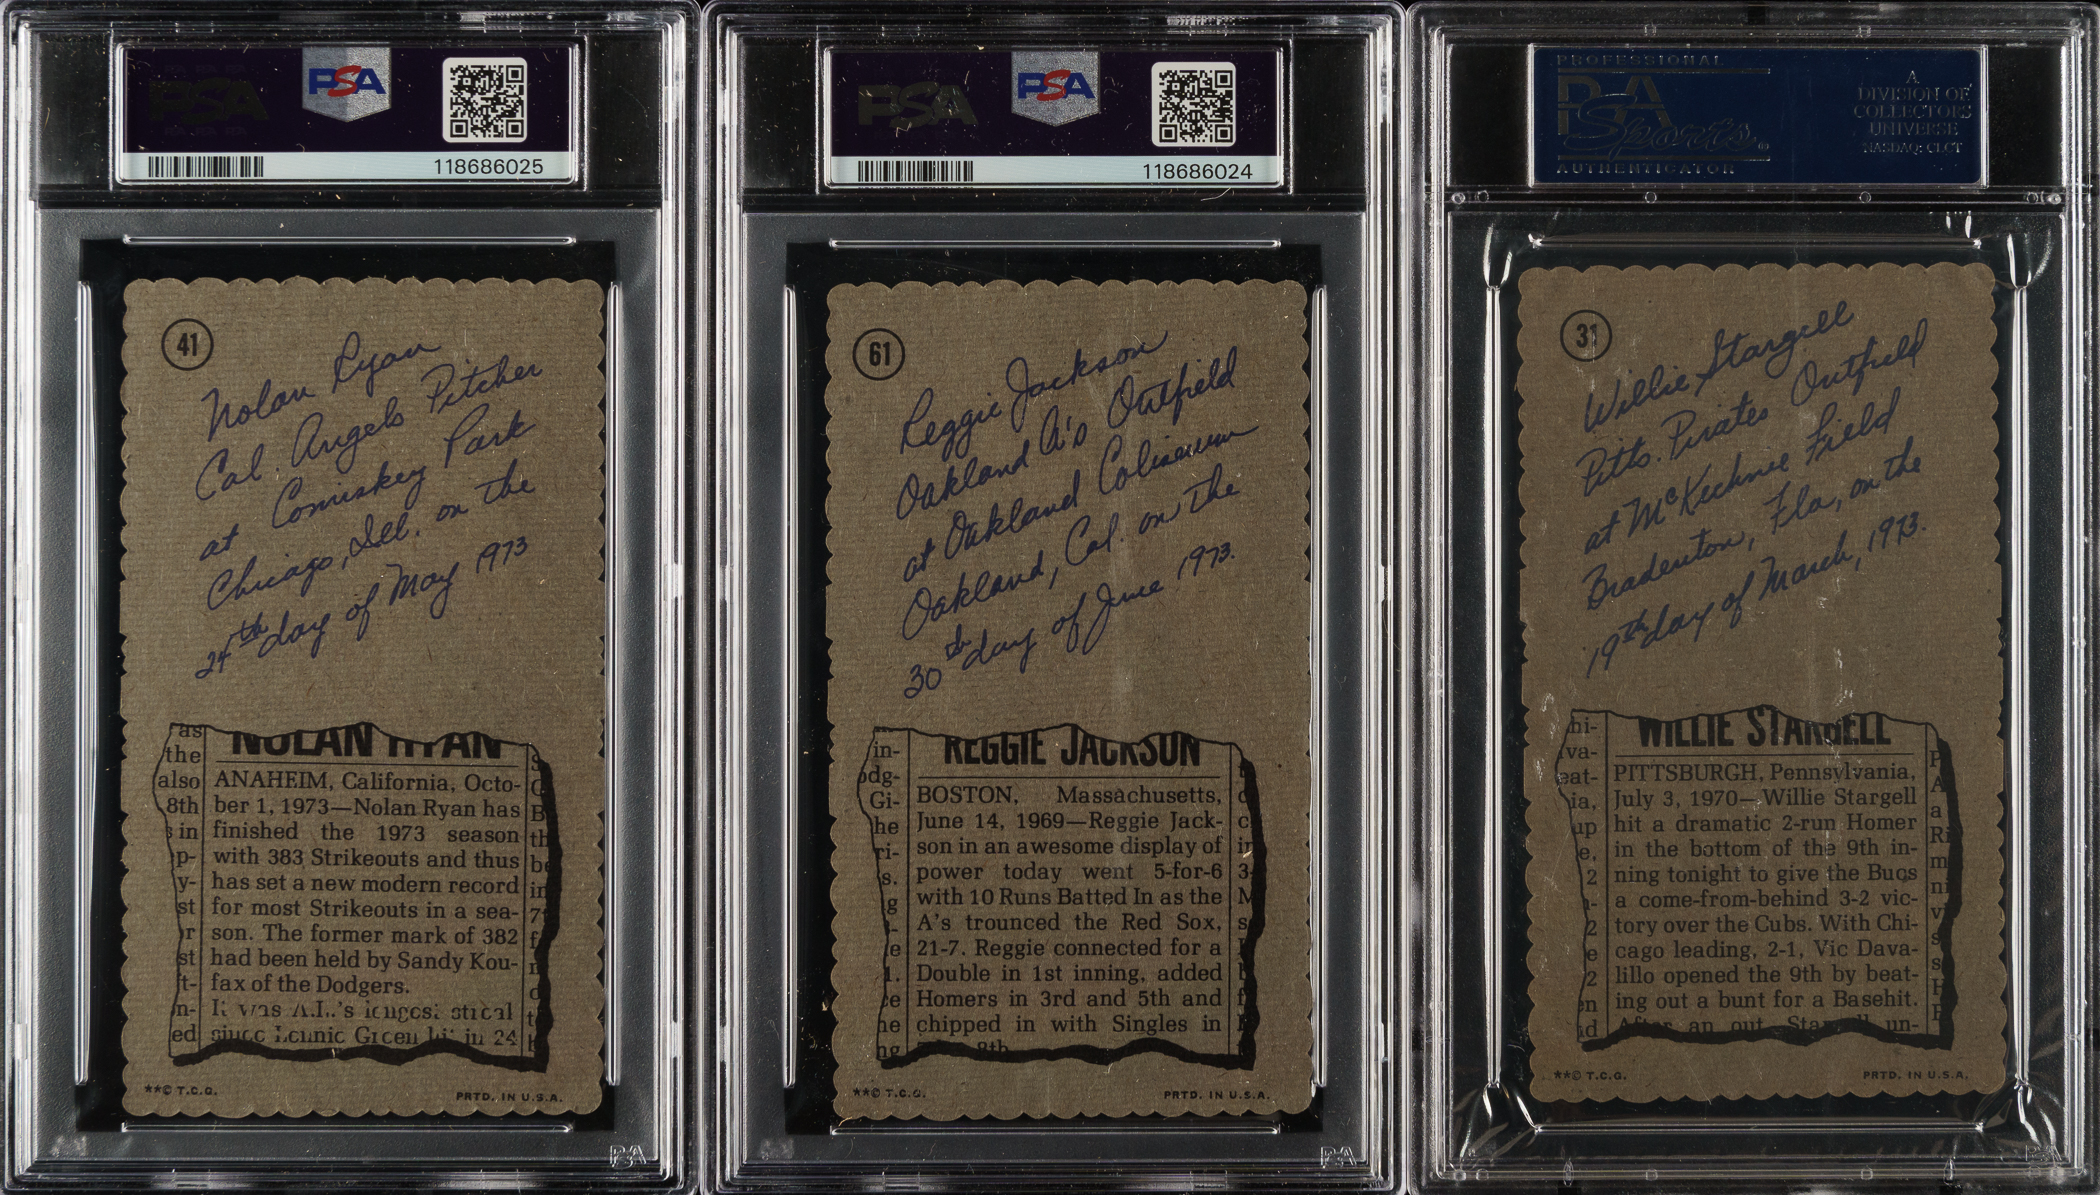 PSA
PSA
PSA PSA PSA
118686025
41
Nolan Ryan
Cal. Angels Pitcher
at Comiskey Park
Chicago, Ill. on the
24th day of May 1973
as
the
also
8th
s in
p-
y-
st
or
st
't-
n-
ed
NOLAN RYAN
ANAHEIM, California, Octo-
ber 1, 1973—Nolan Ryan has
finished the 1973 season
with 383 Strikeouts and thus
has set a new modern record
for most Strikeouts in a sea-
son. The former mark of 382
had been held by Sandy Kou-
fax of the Dodgers.
It was A.L.'s longest
since Lennie Green in 24
**© T.C.G.
PRTD. IN U.S.A.
PSA
PSA
PSA
118686024
61
Reggie Jackson
Oakland A's Outfield
at Oakland Coliseum
Oakland, Cal. on the
30th day of June 1973.
in-
odg-
Gi-
he
ri-
s.
g
REGGIE JACKSON
BOSTON, Massachusetts,
June 14, 1969—Reggie Jack-
son in an awesome display of
power today went 5-for-6
with 10 Runs Batted In as the
A's trounced the Red Sox,
21-7. Reggie connected for a
Double in 1st inning, added
Homers in 3rd and 5th and
chipped in with Singles in
8th
**© T.C.G.
PRTD. IN U.S.A.
PSA
PROFESSIONAL
PSA
Sports®
AUTHENTICATOR
A
DIVISION OF
COLLECTORS
UNIVERSE
NASDAQ: CLCT
31
Willie Stargell
Pitts. Pirates Outfield
at McKechnie Field
Bradenton, Fla, on the
19th day of March, 1973.
hi-
va-
eat-
ia,
up
e,
2
WILLIE STARGELL
PITTSBURGH, Pennsylvania,
July 3, 1970—Willie Stargell
hit a dramatic 2-run Homer
in the bottom of the 9th in-
ning tonight to give the Bucs
a come-from-behind 3-2 vic-
tory over the Cubs. With Chi-
cago leading, 2-1, Vic Dava-
lillo opened the 9th by beat-
ing out a bunt for a Basehit.
After an out, Stargell un-
**© T.C.G.
PRTD. IN U.S.A.
PSA